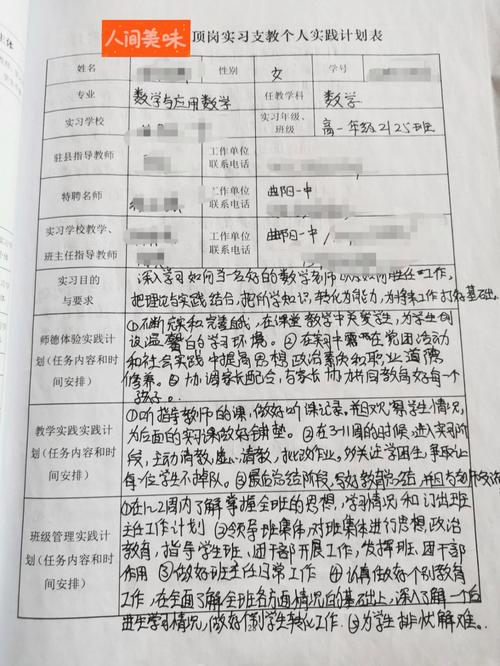 人间美味
顶岗实习支教个人实践计划表
姓名 性别 女 学号
专业 数学与应用数学 任教学科 数学
实习学校 实习年级、班级 高一年级2125班
驻县指导教师 工作单位 联系电话
特聘名师 工作单位 联系电话 曲阳一中
实习学校教学、班主任指导教师 工作单位 联系电话 曲阳一中/
实习目的与要求
深入学习如何当一名好的数学老师以及如何胜任工作,
把理论与实践结合,把所学知识,转化为能力,为将来工作打好基础.
师德体验实践计划(任务内容和时间安排)
①不断充实和完善自我,在课堂教学中关爱学生,为学生创
设温馨的学习环境。②在实习中需要在党团活动
和社会实践中提高思想政治素质和职业道德
修养。③协调家长配合,与家长协力共同教育好每一个
孩子。
教学实践实践计划(任务内容和时间安排)
①听指导教师的课,做好听课记录,并且观察学生情况,
为后面的实习课做好铺垫。②在3-11周的时候,进入实习阶
段,主动请教,虚心请教,批改作业。多关注学困生,争取让
每位学生不掉队。③最后总结阶段,写好教育总结,并
班级管理实践计划(任务内容和时间安排)
①在1-2周内了解掌握全班的思想,学习情况和订出班
主任工作计划②领导班集体,对班集体进行思想政治
教育,指导学生班、团干部开展工作,发挥班、团干部
作用③做好班主任日常工作④认真做好个别教育
工作,在全面了解全班各方面情况的基础上,深入了解一个后
进生学习情况,做好个别学生转化工作.⑤为学生排忧解难。